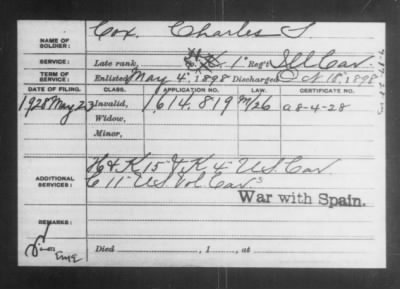 NAME OF SOLDIER: Cox, Charles S.
SERVICE: Late rank, 1" Reg't Ill Cav.
TERM OF SERVICE: Enlisted May 4, 1898 Discharged 1898
DATE OF FILING. CLASS. APPLICATION NO. LAW. CERTIFICATE NO.
1928 May 23 Invalid, 1,614,819 M/26 a 8-4-28
Widow,
Minor,
ADDITIONAL SERVICES: K 15 & K 4" U.S. Cav
C 11" U.S. Vol. Cav
War with Spain.
REMARKS:
Died , 1 , at